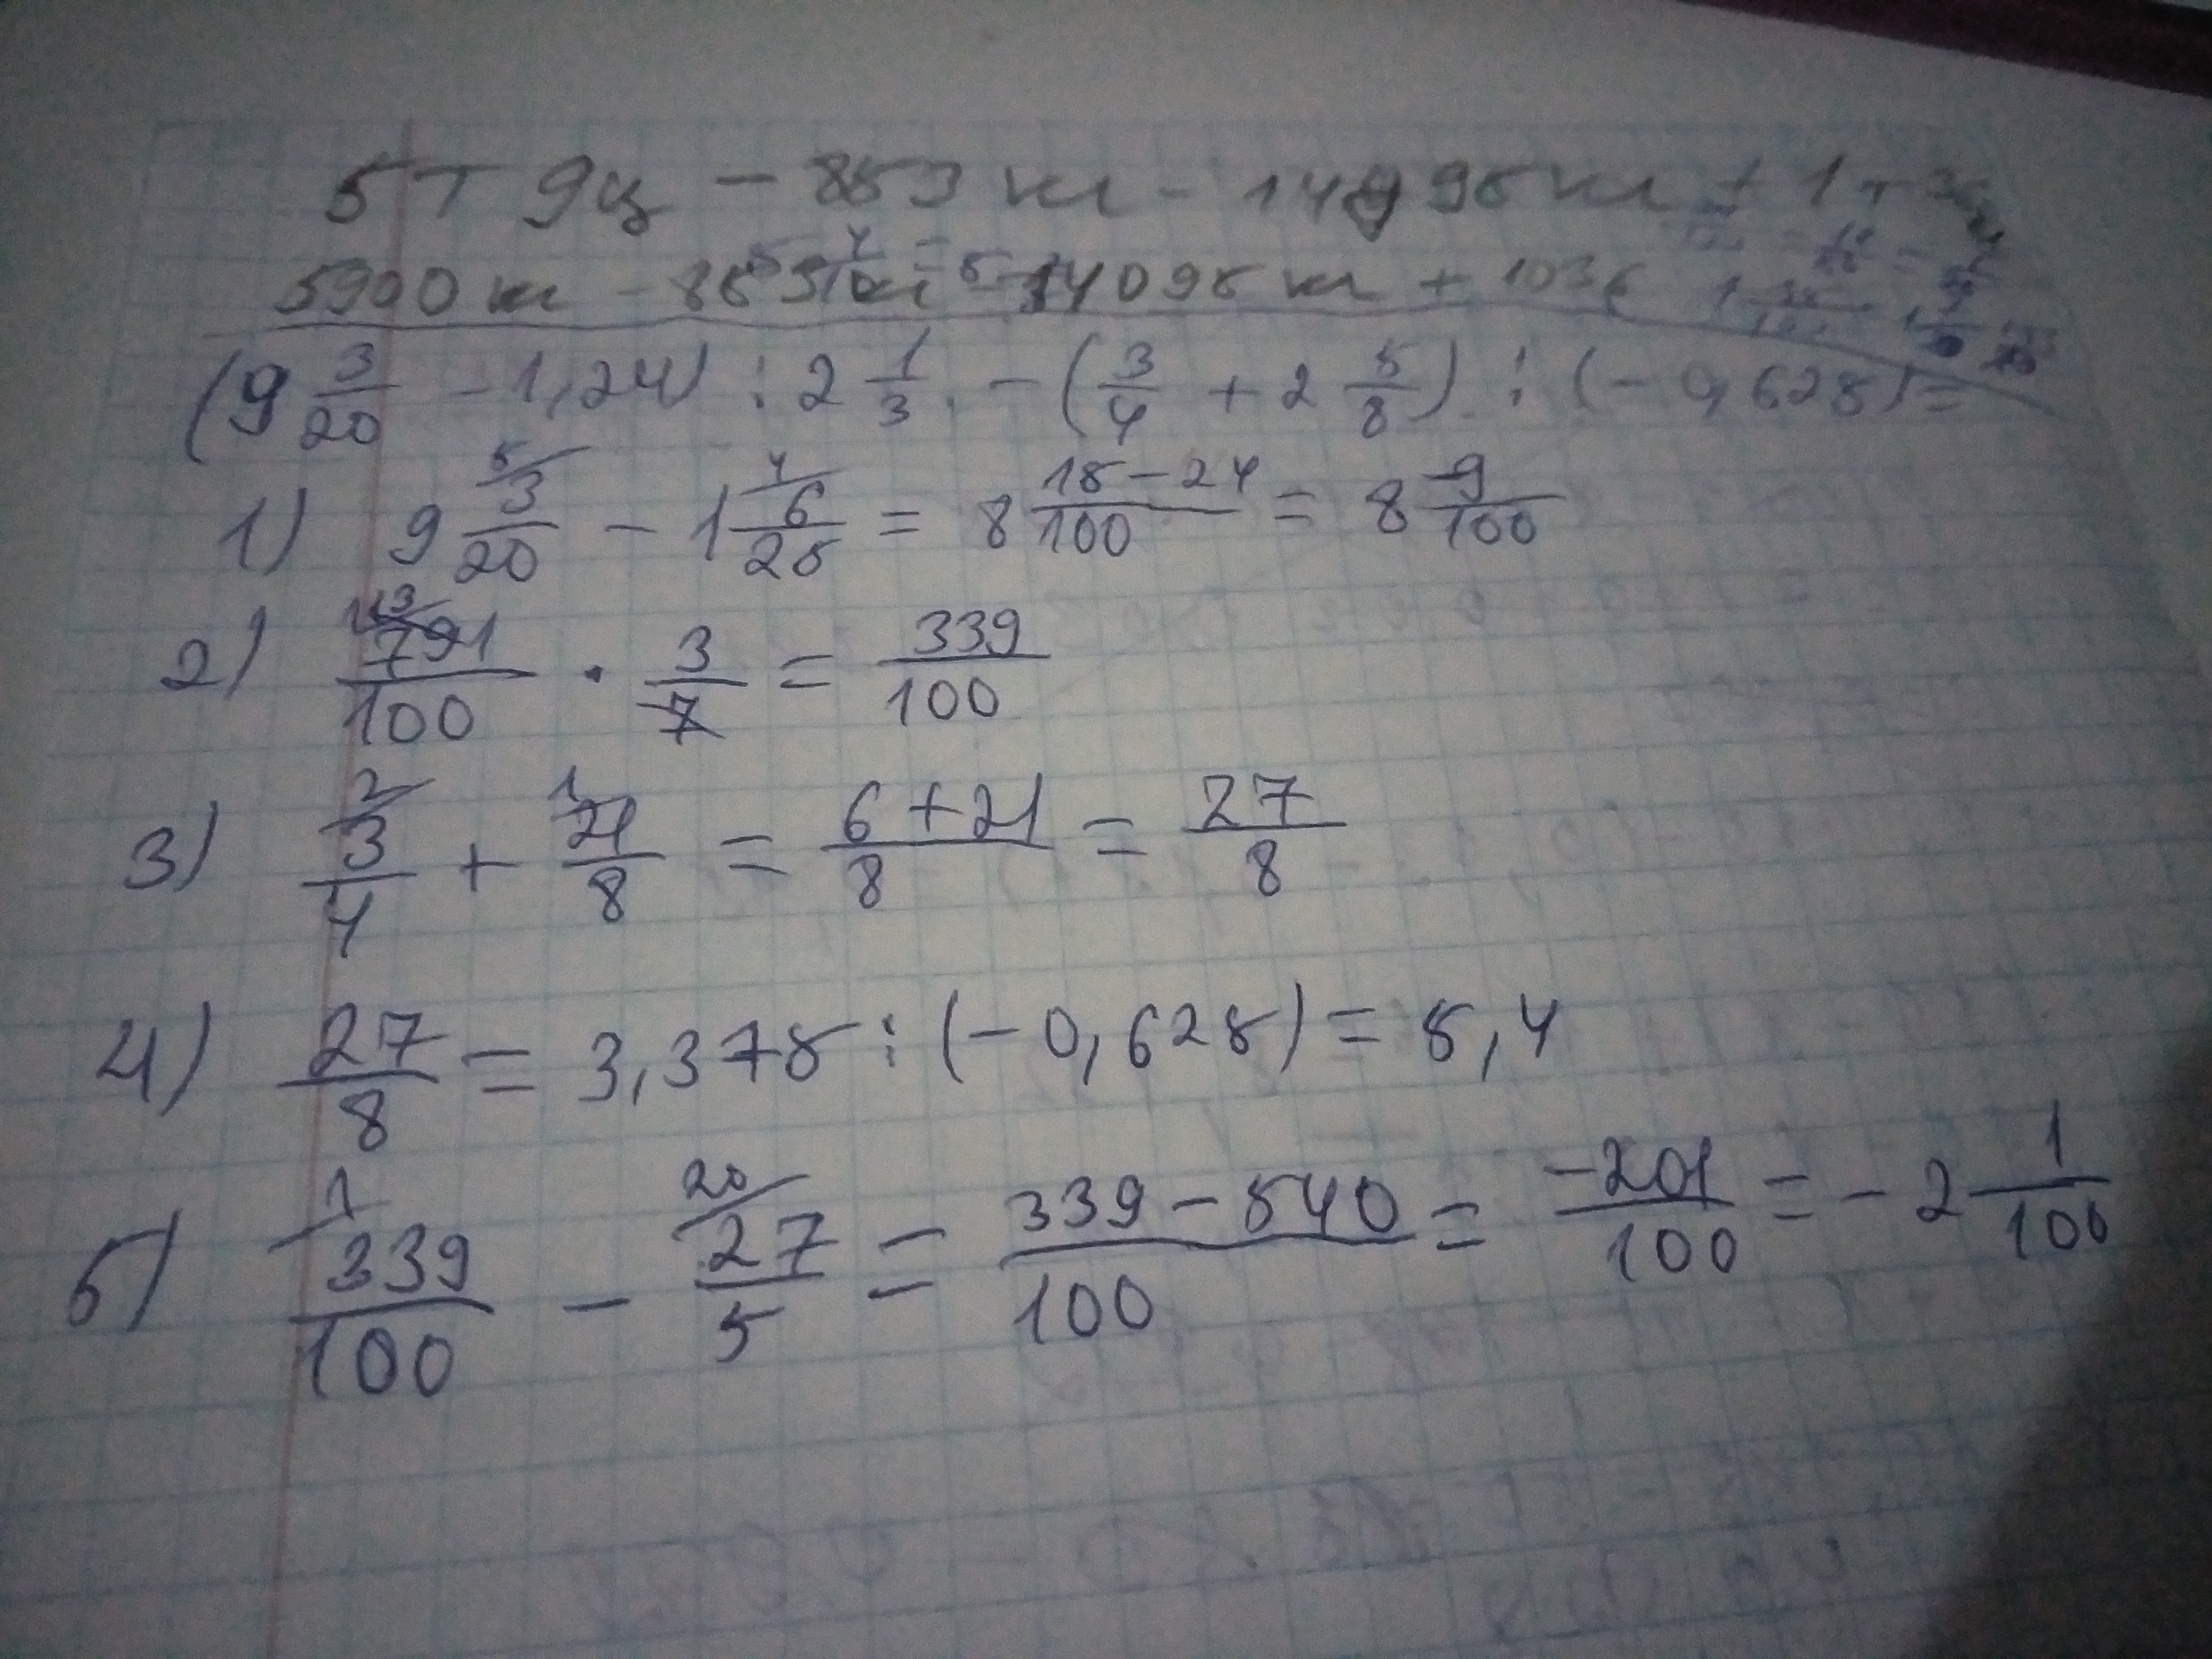 5т 9ц - 853 кг - 14095 кг + 1т 36
5900 кг - 853 кг - 14095 кг + 1036
(9 3/20 - 1,24) : 2 1/3 - (3/4 + 2 5/8) : (-0,625) =
1) 9 3/20 - 1 6/25 = 8 15-24/100 = 8 -9/100
2) 791/100 · 3/7 = 339/100
3) 3/4 + 21/8 = 6+21/8 = 27/8
4) 27/8 = 3,375 : (-0,625) = 5,4
5) 339/100 - 27/5 = 339-540/100 = -201/100 = -2 1/100